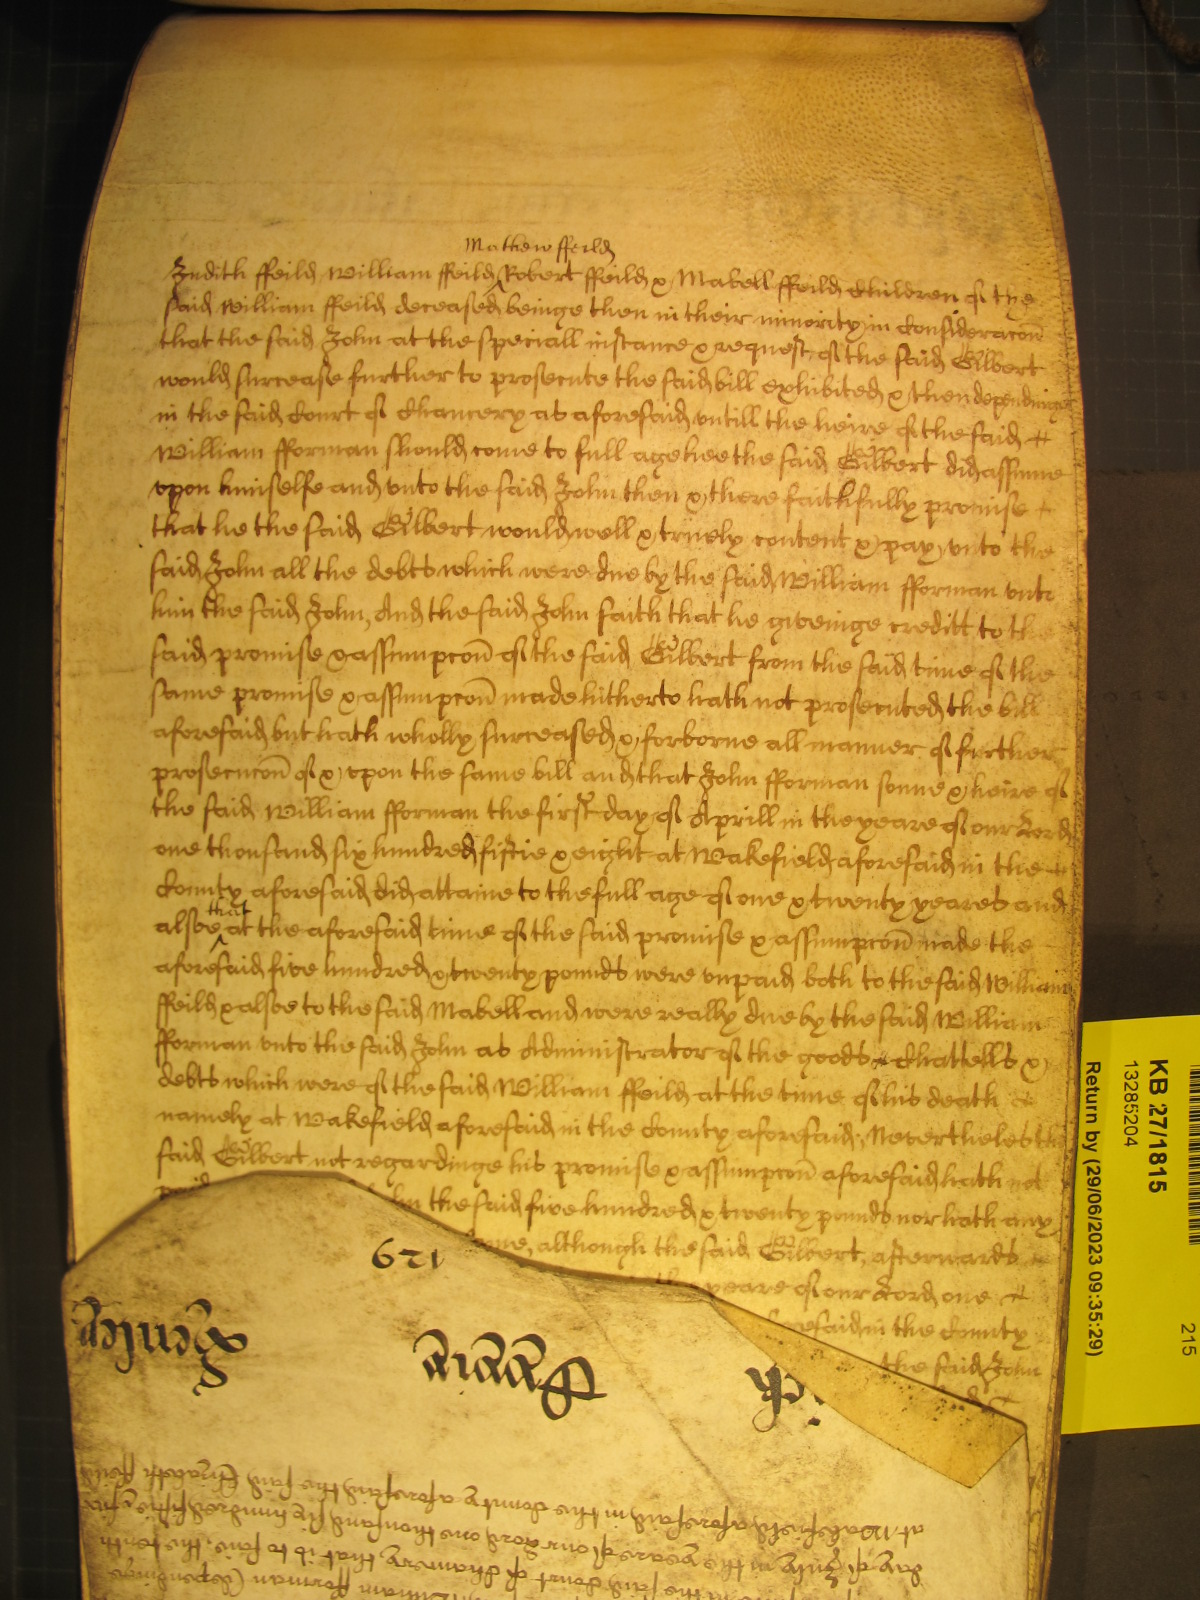 Mathew ffeild
Judith ffeild William ffeild Robert ffeild & Mabell ffeild Children of the
said William ffeild deceased beinge then in their minority in Consideracon
that the said John at the speciall instance & request of the said Gilbert
would surcease further to prosecute the said bill exhibited & then dependinge
in the said Court of Chancery as aforesaid untill the heire of the said
William fforman should come to full age hee the said Gilbert did assume
upon himselfe and unto the said John then & there faithfully promise
that he the said Gilbert would well & truely content & pay unto the
said John all the debts which were due by the said William fforman unto
him the said John, And the said John saith that he giveinge creditt to the
said promise & assumpcon of the said Gilbert from the said time of the
same promise & assumpcon made hitherto hath not prosecuted the bill
aforesaid but hath wholly surceased & forborne all manner of further
prosecucon of & upon the same bill and that John fforman sonne & heire of
the said William fforman the first day of Aprill in the yeare of our Lord
one thousand six hundred fiftie & eight at Wakefield aforesaid in the
County aforesaid did attaine to the full age of one & twenty yeares and
alsoe that at the aforesaid time of the said promise & assumpcon made the
aforesaid five hundred & twenty pounds were unpaid both to the said William
ffeild & alsoe to the said Mabell and were really due by the said William
fforman unto the said John as Administrator of the goods Chattells &
debts which were of the said William ffeild at the time of his death
namely at Wakefield aforesaid in the County aforesaid, Neverthelesse the
said Gilbert not regardinge his promise & assumpcon aforesaid hath not
paid the said five hundred & twenty pounds nor hath any
although the said Gilbert, afterwards
the yeare of our Lord one
aforesaid in the County
the said John
KB 27/1815
13285204
Return by (29/06/2023 09:35:29)
215